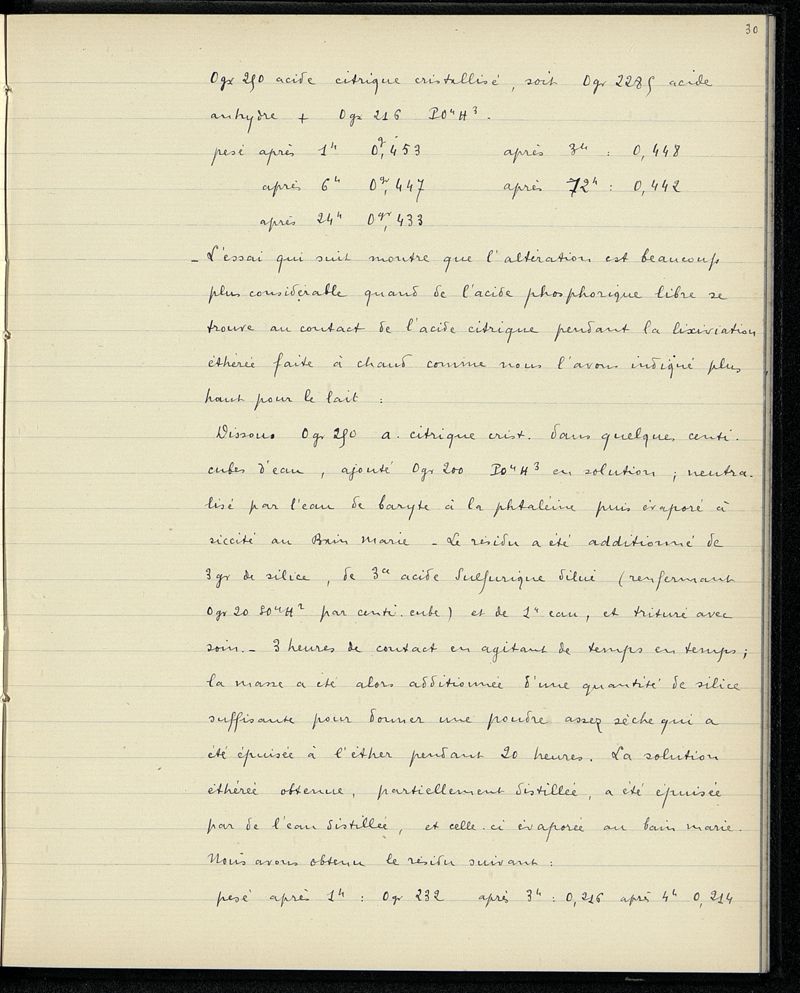 30
0gr 250 acide citrique cristallisé, soit 0gr 2285 acide
anhydre + 0gr 216 PO⁴H³.
pesé après 1ʰ 0gr,453 après 3ʰ : 0,448
après 6ʰ 0gr,447 après 72ʰ : 0,442
après 24ʰ 0gr,433
- L'essai qui suit montre que l'altération est beaucoup
plus considérable quand de l'acide phosphorique libre se
trouve au contact de l'acide citrique pendant la lixiviation
éthérée faite à chaud comme nous l'avons indiqué plus
haut pour le lait :
Dissous 0gr 250 a. citrique crist. dans quelques centi.
cubes d'eau, ajouté 0gr 200 PO⁴H³ en solution ; neutra-
lisé par l'eau de baryte à la phtaléine puis évaporé à
siccité au Bain marie - Le résidu a été additionné de
3gr de silice, de 3cc acide sulfurique dilué (renfermant
0gr 20 SO⁴H² par centi. cube) et de 1cc eau, et trituré avec
soin. - 3 heures de contact en agitant de temps en temps ;
la masse a été alors additionnée d'une quantité de silice
suffisante pour donner une poudre assez sèche qui a
été épuisée à l'éther pendant 20 heures. La solution
éthérée obtenue, partiellement distillée, a été épuisée
par de l'eau distillée, et celle-ci évaporée au bain marie.
Nous avons obtenu le résidu suivant :
pesé après 1ʰ : 0gr 232 après 3ʰ : 0,216 après 4ʰ 0,214